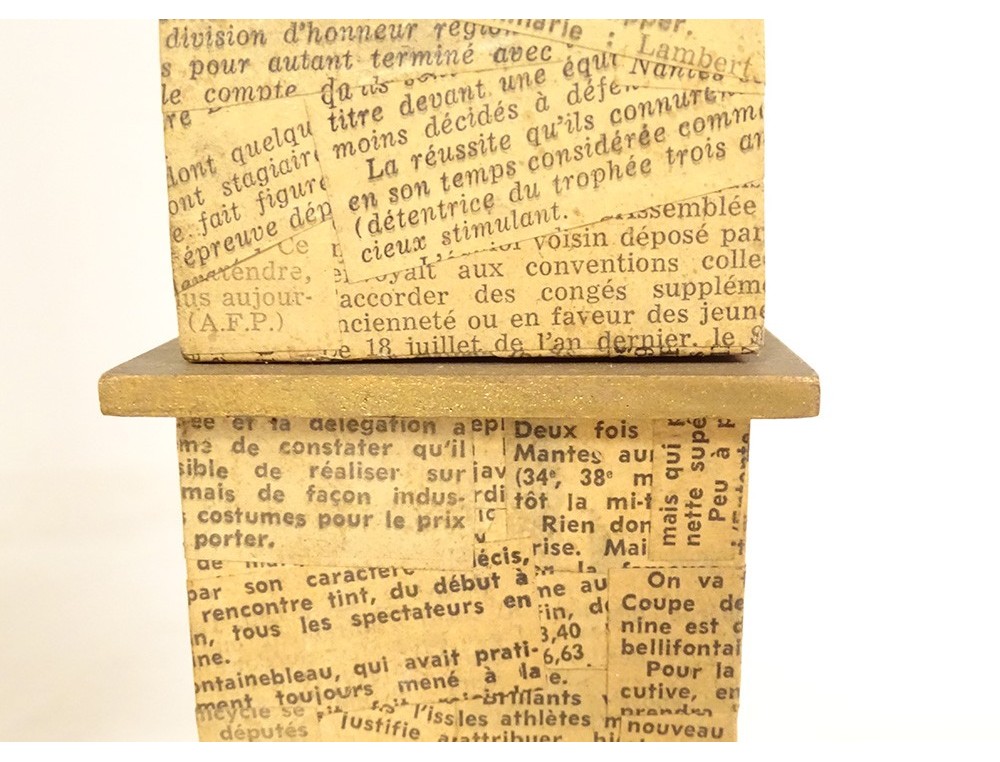 division d'honneur
s pour autant terminé avec
le compte
: Lambert
Nantes
titre devant une équi
moins décidés à défe
La réussite qu'ils connuren
en son temps considérée comm
(détentrice du trophée trois an
cieux stimulant.
dont quelqu
ont stagiaire
e fait figure
épreuve dép
Ce
tendre,
us aujour-
(A.F.P.)
voisin déposé par
aux conventions colle
accorder des congés supplém
ncienneté ou en faveur des jeune
18 juillet de l'an dernier. le
et la délégation a
de constater qu'il
sible de réaliser sur
mais de façon indus-
costumes pour le prix
porter.
épi
jav
rdi
écis,
Deux fois
Mantes au
(34e, 38e m
tôt la mi-t
Rien don
rise. Mai
mais qui
nette supé
Peu à p
par son caractère
rencontre tint, du début à
n, tous les spectateurs en
ne.
ontainebleau, qui avait prati-
ment toujours mené à la
me au
in, de
3,40
6,63
e.
brillants
On va
Coupe de
nine est
bellifontai
Pour la
cutive, en
prendre
députés
justifie
les athlètes m
attribuer
nouveau